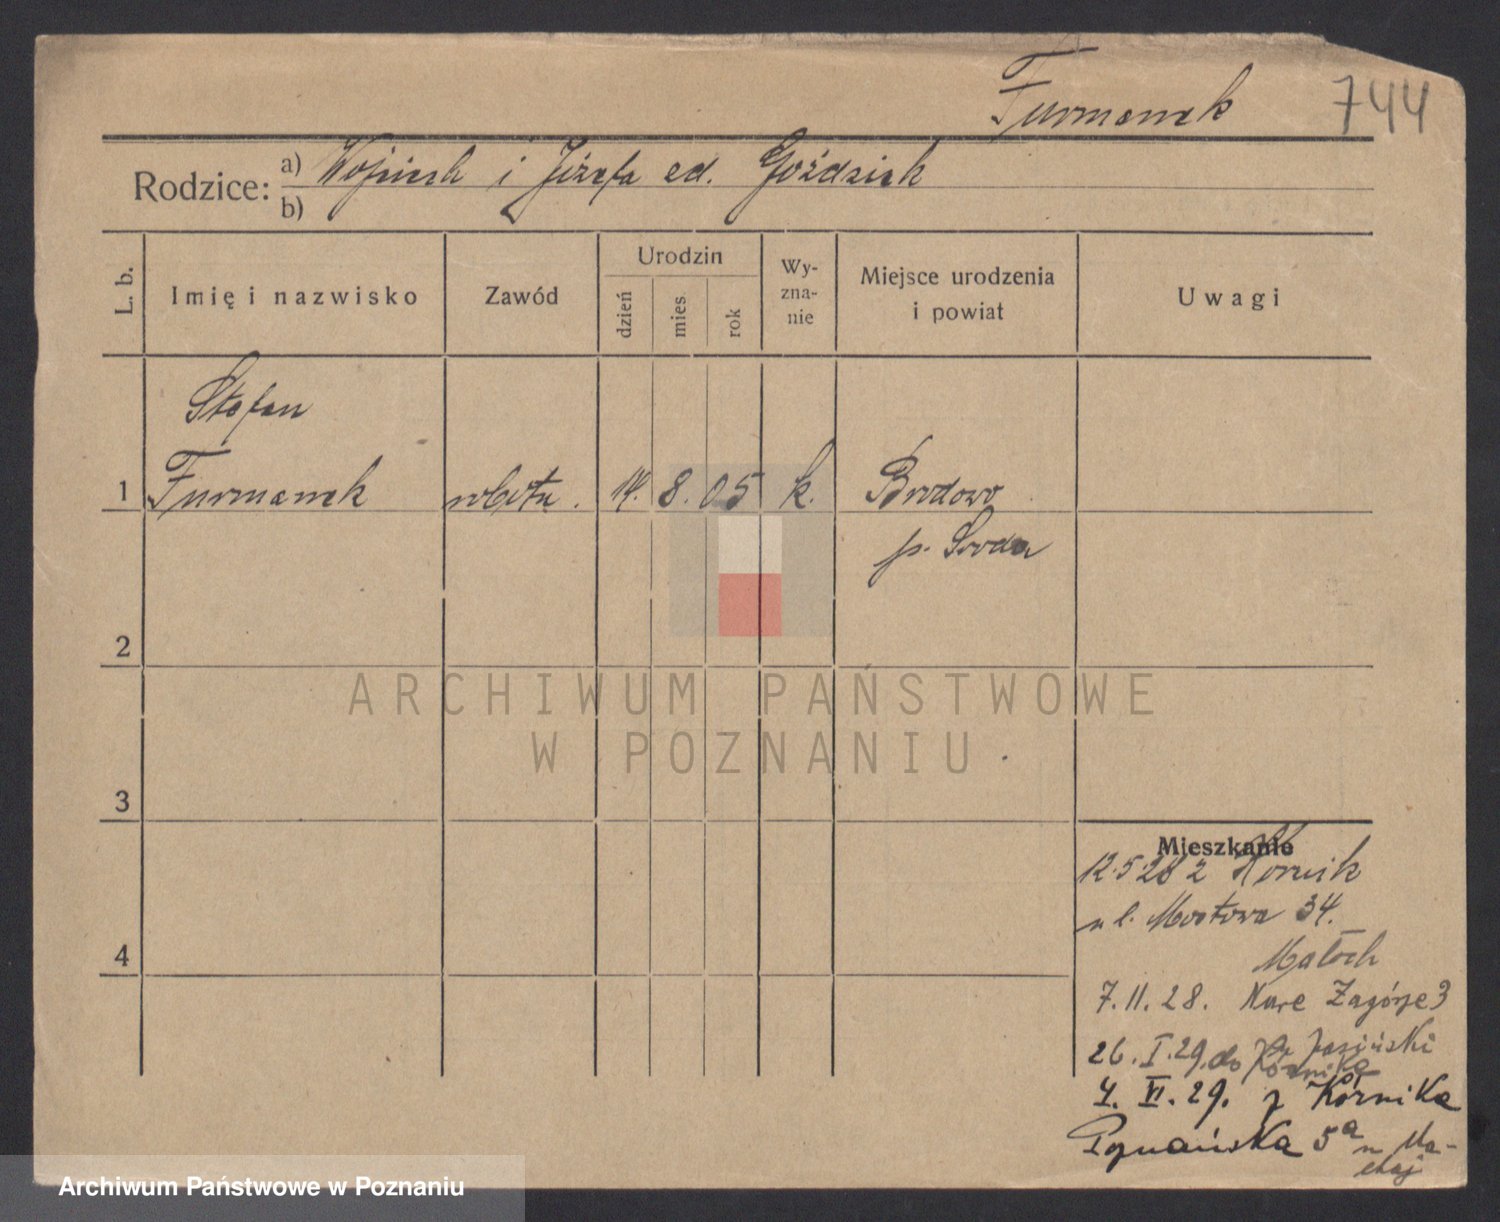 Furmanek 744
Rodzice: a) Wojciech i Józefa ed. Goździak
b)
L. b. Imię i nazwisko Zawód Urodzin dzień mies. rok Wy-zna-nie Miejsce urodzenia i powiat Uwagi
Stefan
1 Furmanek robotn. 14. 8. 05 k. Brodowo
p. Sroda
2
ARCHIWUM PAŃSTWOWE
W POZNANIU
3
Mieszkanie
12.5.28 z Kórnik
ul. Mostowa 34.
Matoch
7.11.28. Nare Zagórze 3
Jasiński
26.I.29. do Kórnika
4
4. VI. 29. z Kórnika
Poznańska 5a
Archiwum Państwowe w Poznaniu